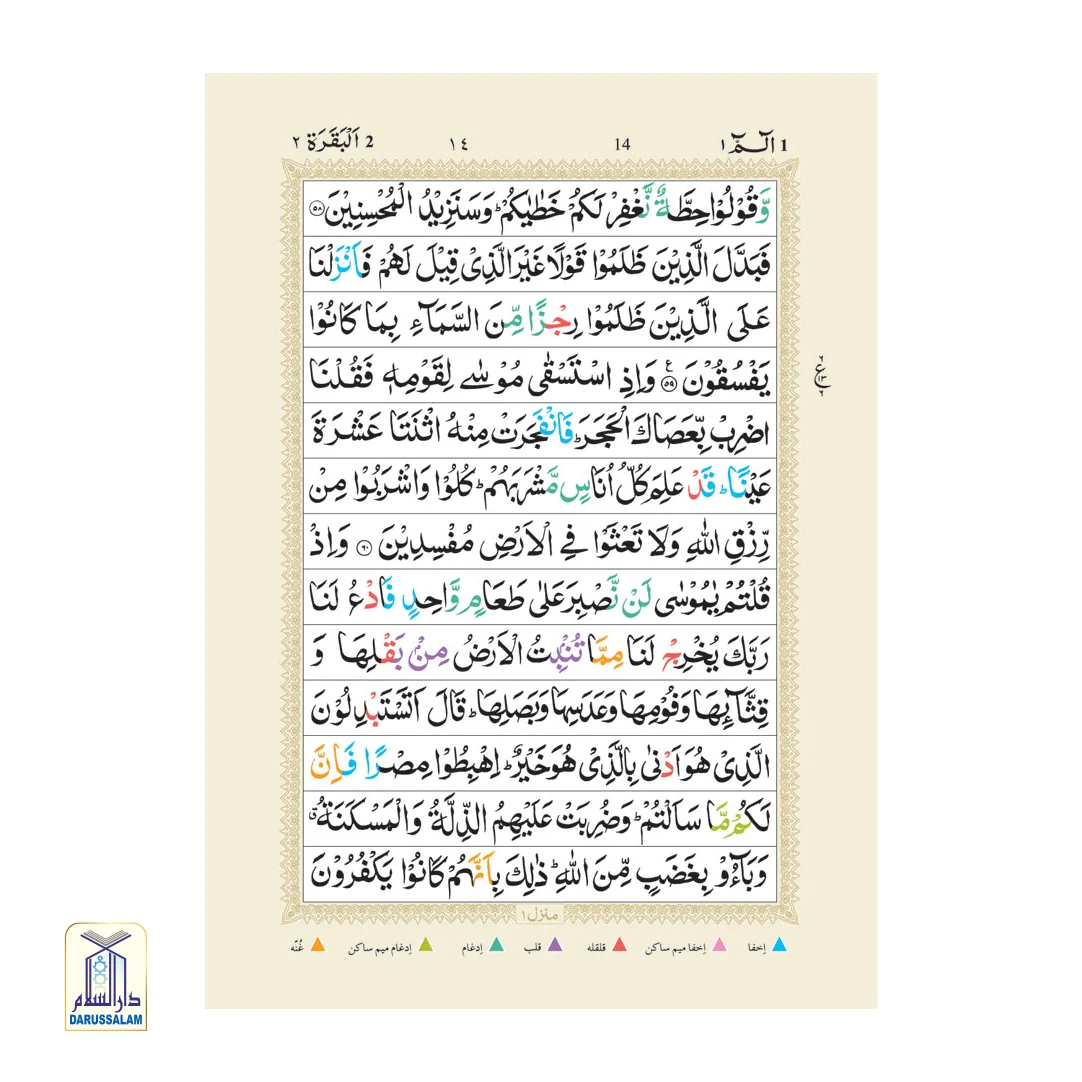 1 الٓـمّٓ ١ 14 ١٤ 2 اَلْبَقَرَة ٢
وَّقُوْلُوْا حِطَّةٌ نَّغْفِرْ لَكُمْ خَطٰيٰكُمْ ؕ وَسَنَزِيْدُ الْمُحْسِنِيْنَ ۝۵۸
فَبَدَّلَ الَّذِيْنَ ظَلَمُوْا قَوْلًا غَيْرَ الَّذِيْ قِيْلَ لَهُمْ فَاَنْزَلْنَا
عَلَى الَّذِيْنَ ظَلَمُوْا رِجْزًا مِّنَ السَّمَآءِ بِمَا كَانُوْا
يَفْسُقُوْنَ ۝۵۹ ع وَاِذِ اسْتَسْقٰى مُوْسٰى لِقَوْمِهٖ فَقُلْنَا
ع
اضْرِبْ بِّعَصَاكَ الْحَجَرَ ؕ فَانْفَجَرَتْ مِنْهُ اثْنَتَا عَشْرَةَ
عَيْنًا ؕ قَدْ عَلِمَ كُلُّ اُنَاسٍ مَّشْرَبَهُمْ ؕ كُلُوْا وَاشْرَبُوْا مِنْ
رِّزْقِ اللّٰهِ وَلَا تَعْثَوْا فِى الْاَرْضِ مُفْسِدِيْنَ ۝۶۰ وَاِذْ
قُلْتُمْ يٰمُوْسٰى لَنْ نَّصْبِرَ عَلٰى طَعَامٍ وَّاحِدٍ فَادْعُ لَنَا
رَبَّكَ يُخْرِجْ لَنَا مِمَّا تُنْۢبِتُ الْاَرْضُ مِنْۢ بَقْلِهَا وَ
قِثَّآئِهَا وَفُوْمِهَا وَعَدَسِهَا وَبَصَلِهَا ؕ قَالَ اَتَسْتَبْدِلُوْنَ
الَّذِيْ هُوَ اَدْنٰى بِالَّذِيْ هُوَ خَيْرٌ ؕ اِهْبِطُوْا مِصْرًا فَاِنَّ
لَكُمْ مَّا سَاَلْتُمْ ؕ وَضُرِبَتْ عَلَيْهِمُ الذِّلَّةُ وَالْمَسْكَنَةُ ۗ
وَبَآءُوْ بِغَضَبٍ مِّنَ اللّٰهِ ؕ ذٰلِكَ بِاَنَّهُمْ كَانُوْا يَكْفُرُوْنَ
منزل ١
اِخفا اِخفا ميم ساكن قلقله قلب اِدغام اِدغام ميم ساكن غُنّه
دار السلام
DARUSSALAM